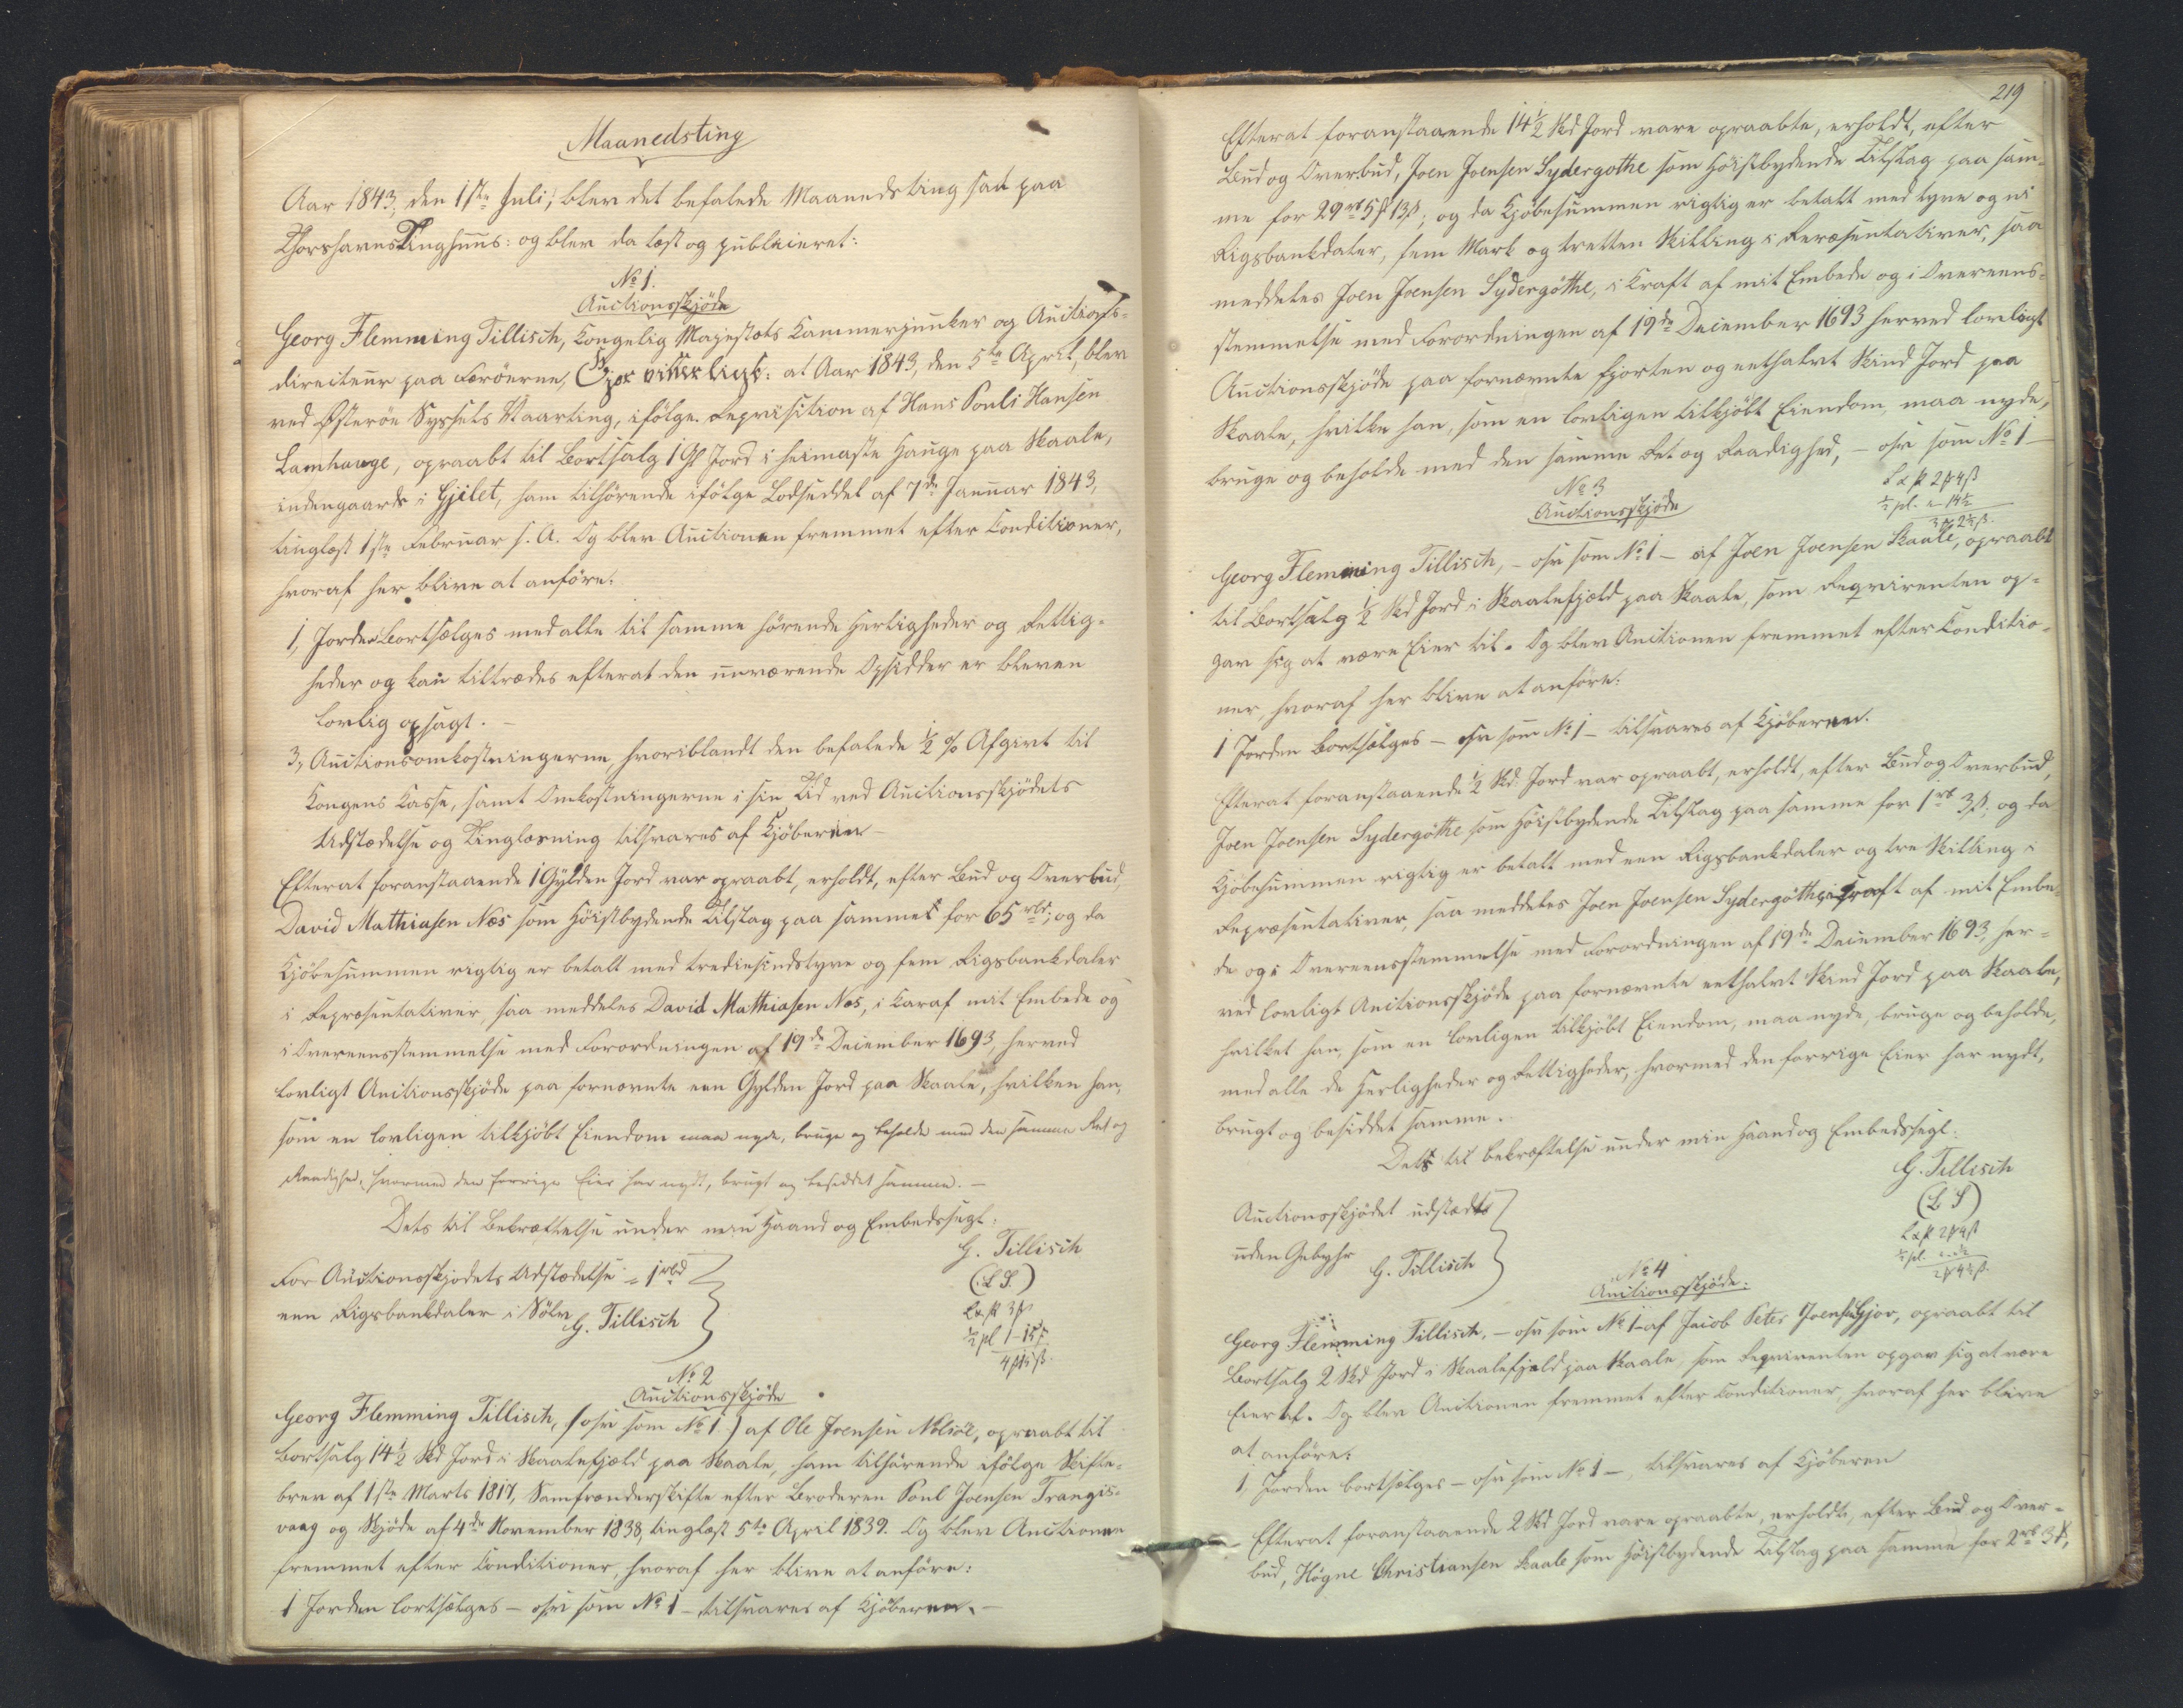 Maanedsting
Aar 1843, den 1ste Juli, blev det befalede Maanedsting sat paa
Thorshavns Tinghuus: og blev da læst og publiceret:
No 1.
Auctionsskjöde
Georg Flemming Tillisch, Kongelig Majestæts Kammerjunker og Auctions-
directeur paa Færöerne, Gjør vitterligt: at Aar 1843, den 5te April, blev
ved Østeröe Syssels Vaarting, ifölge Reqvisition af Hans Pouli Hansen
Lamhauge, opraabt til Bortsalg 1 Gl Jord i heimaste Hauge paa Skaale,
indengaards i Gjilet, ham tilhörende ifölge Lodseddel af 7de Januar 1843,
tinglæst 1ste Februar s. A. Og blev Auctionen fremmet efter Conditioner,
hvoraf her blive at anföre:
1, Jorden bortsælges med alle til samme hörende Herligheder og Rettig-
heder og kan tiltrædes efterat den nuværende Opsidder er bleven
lovlig opsagt. –
3, Auctionsomkostningerne, hvoriblandt den befalede ½ % Afgivt til
Kongens Kasse, samt Omkostningerne i sin Tid ved Auctionsskjödets
Udstædelse og Tinglæsning tilsvares af Kjöberen –
Efterat foranstaaende 1 Gylden Jord var opraabt, erholdt, efter Bud og Overbud,
David Mathiasen Næs som Höistbydende Tilslag paa samme for 65 rbd; og da
Kjöbesummen rigtig er betalt med trediesindstyve og fem Rigsbankdaler
i Repræsentativer, saa meddeles David Mathiasen Næs, i Kraf mit Embede og
i Overeensstemmelse med Forordningen af 19de December 1693, herved
lovligt Auctionsskjöde paa fornævnte een Gylden Jord paa Skaale, hvilken han,
som en lovligen tilkjöbt Eiendom maa nyde, bruge og beholde med den samme Ret og
Raadighed, hvormed den forrige Eier har nydt, brugt og besiddet samme. –
Dets til Bekræftelse under min Haand og Embedssegl:
G. Tillisch
(L S.)
For Auctionsskjödets Udstædelse = 1 rbd
een Rigsbankdaler i Sölv
G. Tillisch
No 2
Auctionsskjöde
Georg Flemming Tillisch, (osv som No 1) af Ole Joensen Nolsöe, opraabt til
Bortsalg 14½ Skd Jord i Skaalefjæld paa Skaale, ham tilhörende ifölge Skifte-
brev af 1ste Marts 1817, Samfrænderskifte efter Broderen Poul Joensen Trangis-
vaag og Skjöde af 4de November 1838, tinglæst 5te April 1839. Og blev Auctionen
fremmet efter Conditioner, hvoraf her blive at anföre:
1 Jorden bortsælges – osv som No 1 – tilsvares af Kjöberen. –
219
Efterat foranstaaende 14½ Skd Jord vare opraabte, erholdt, efter
Bud og Overbud, Joen Joensen Sydergothe som Höistbydende Tilslag paa sam-
me for 29 rb 5 ꝟ 13 ß; og da Kjöbesummen rigtig er betalt med tyve og ni
Rigsbankdaler, fem Mark og tretten Skilling i Repræsentativer, saa
meddeles Joen Joensen Sydergöthe, i Kraft af mit Embede og i Overeens-
stemmelse med Forordningen af 19de December 1693 herved lovligt
Auctionsskjöde paa fornævnte fjorten og eethalvt Skind Jord paa
Skaale, hvilke han, som en lovligen tilkjöbt Eiendom, maa nyde,
bruge og beholde med den samme Ret og Raadighed, – osv som No 1 –
No 3
Auctionsskjöde
Georg Flemming Tillisch, – osv som No 1 – af Joen Joensen Skaale, opraabt
til Bortsalg ½ Skd Jord i Skaalefjæld paa Skaale, som Reqvirenten op-
gav sig at være Eier til. Og blev Auctionen fremmet efter Conditio-
ner, hvoraf her blive at anföre:
1 Jorden bortsælges – osv som No 1 – tilsvares af Kjöberen.
Efterat foranstaaende ½ Skd. Jord var opraabt, erholdt, efter Bud og Overbud,
Joen Joensen Sydergöthe som Höistbydende Tilslag paa samme for 1 rb 3 ß; og da
Kjöbesummen rigtig er betalt med een Rigsbankdaler og tre Skilling i
Repræsentativer, saa meddeles Joen Joensen Sydergöthe, i Kraft af mit Embe-
de og i Overeensstemmelse med Forordningen af 19de December 1693, her-
ved lovligt Auctionsskjöde paa fornævnte eethalvt Skind Jord paa Skaale,
hvilket han, som en lovligen tilkjöbt Eiendom, maa nyde, bruge og beholde,
med alle de Herligheder og Rettigheder, hvormed den forrige Eier har nydt,
brugt og besiddet samme.
Dets til Bekræftelse under min Haand og Embedssegl:
G. Tillisch
(L S)
Auctionsskjödet udstædt
uden Gebyhr
G. Tillisch
No 4
Auctionsskjöde:
Georg Flemming Tillisch, – osv som No 1 – af Jacob Peter Joensen Gjov, opraabt til
Bortsalg 2 Skd Jord i Skaalefjæld paa Skaale, som Reqvirenten opgav sig at være
Eier af. Og blev Auctionen fremmet efter Conditioner, hvoraf her blive
at anföre:
1, Jorden bortsælges – osv som No 1 – , tilsvares af Kjöberen
Efterat foranstaaende 2 Skd Jord vare opraabte, erholdt, efter Bud og Over-
bud, Högne Christiansen Skaale som Höistbydende Tilslag paa samme for 2 rb 3 ꝟ,